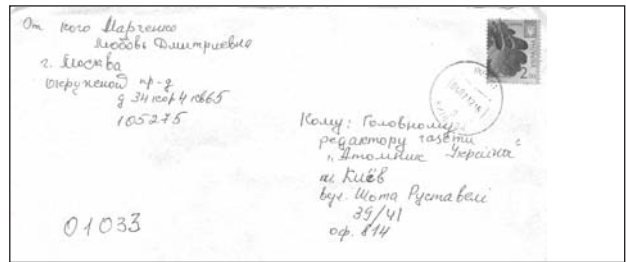 От кого Марченко
Любовь Дмитриевна
г. Москва
Окружной пр-д
д 34 кор 4 кв 65
105275
Кому: Головному
редактору газети
"Атомник України"
м. Київ
вул. Шота Руставелі
39/41
оф. 814
01033